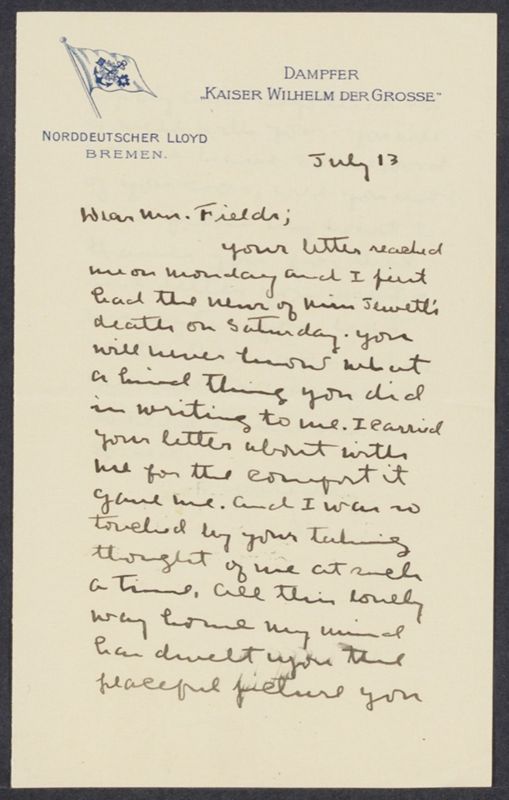 DAMPFER
„KAISER WILHELM DER GROSSE"
NORDDEUTSCHER LLOYD
BREMEN.
July 13
Dear Mrs. Fields;
your letter reached
me on Monday and I first
had the news of Miss Jewett's
death on Saturday. You
will never know what
a kind thing you did
in writing to me. I carried
your letter about with
me for the comfort it
gave me. And I was so
touched by your taking
thought of me at such
a time. All this lonely
way home my mind
has dwelt upon the
peaceful picture you